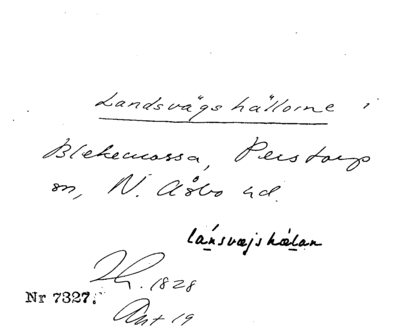 Landsvägshällorne i
Blekemossa, Perstorp
sn, N. Åsbo hd.
lánsvæjshælan
Nr 7327. 1828
Ant 19